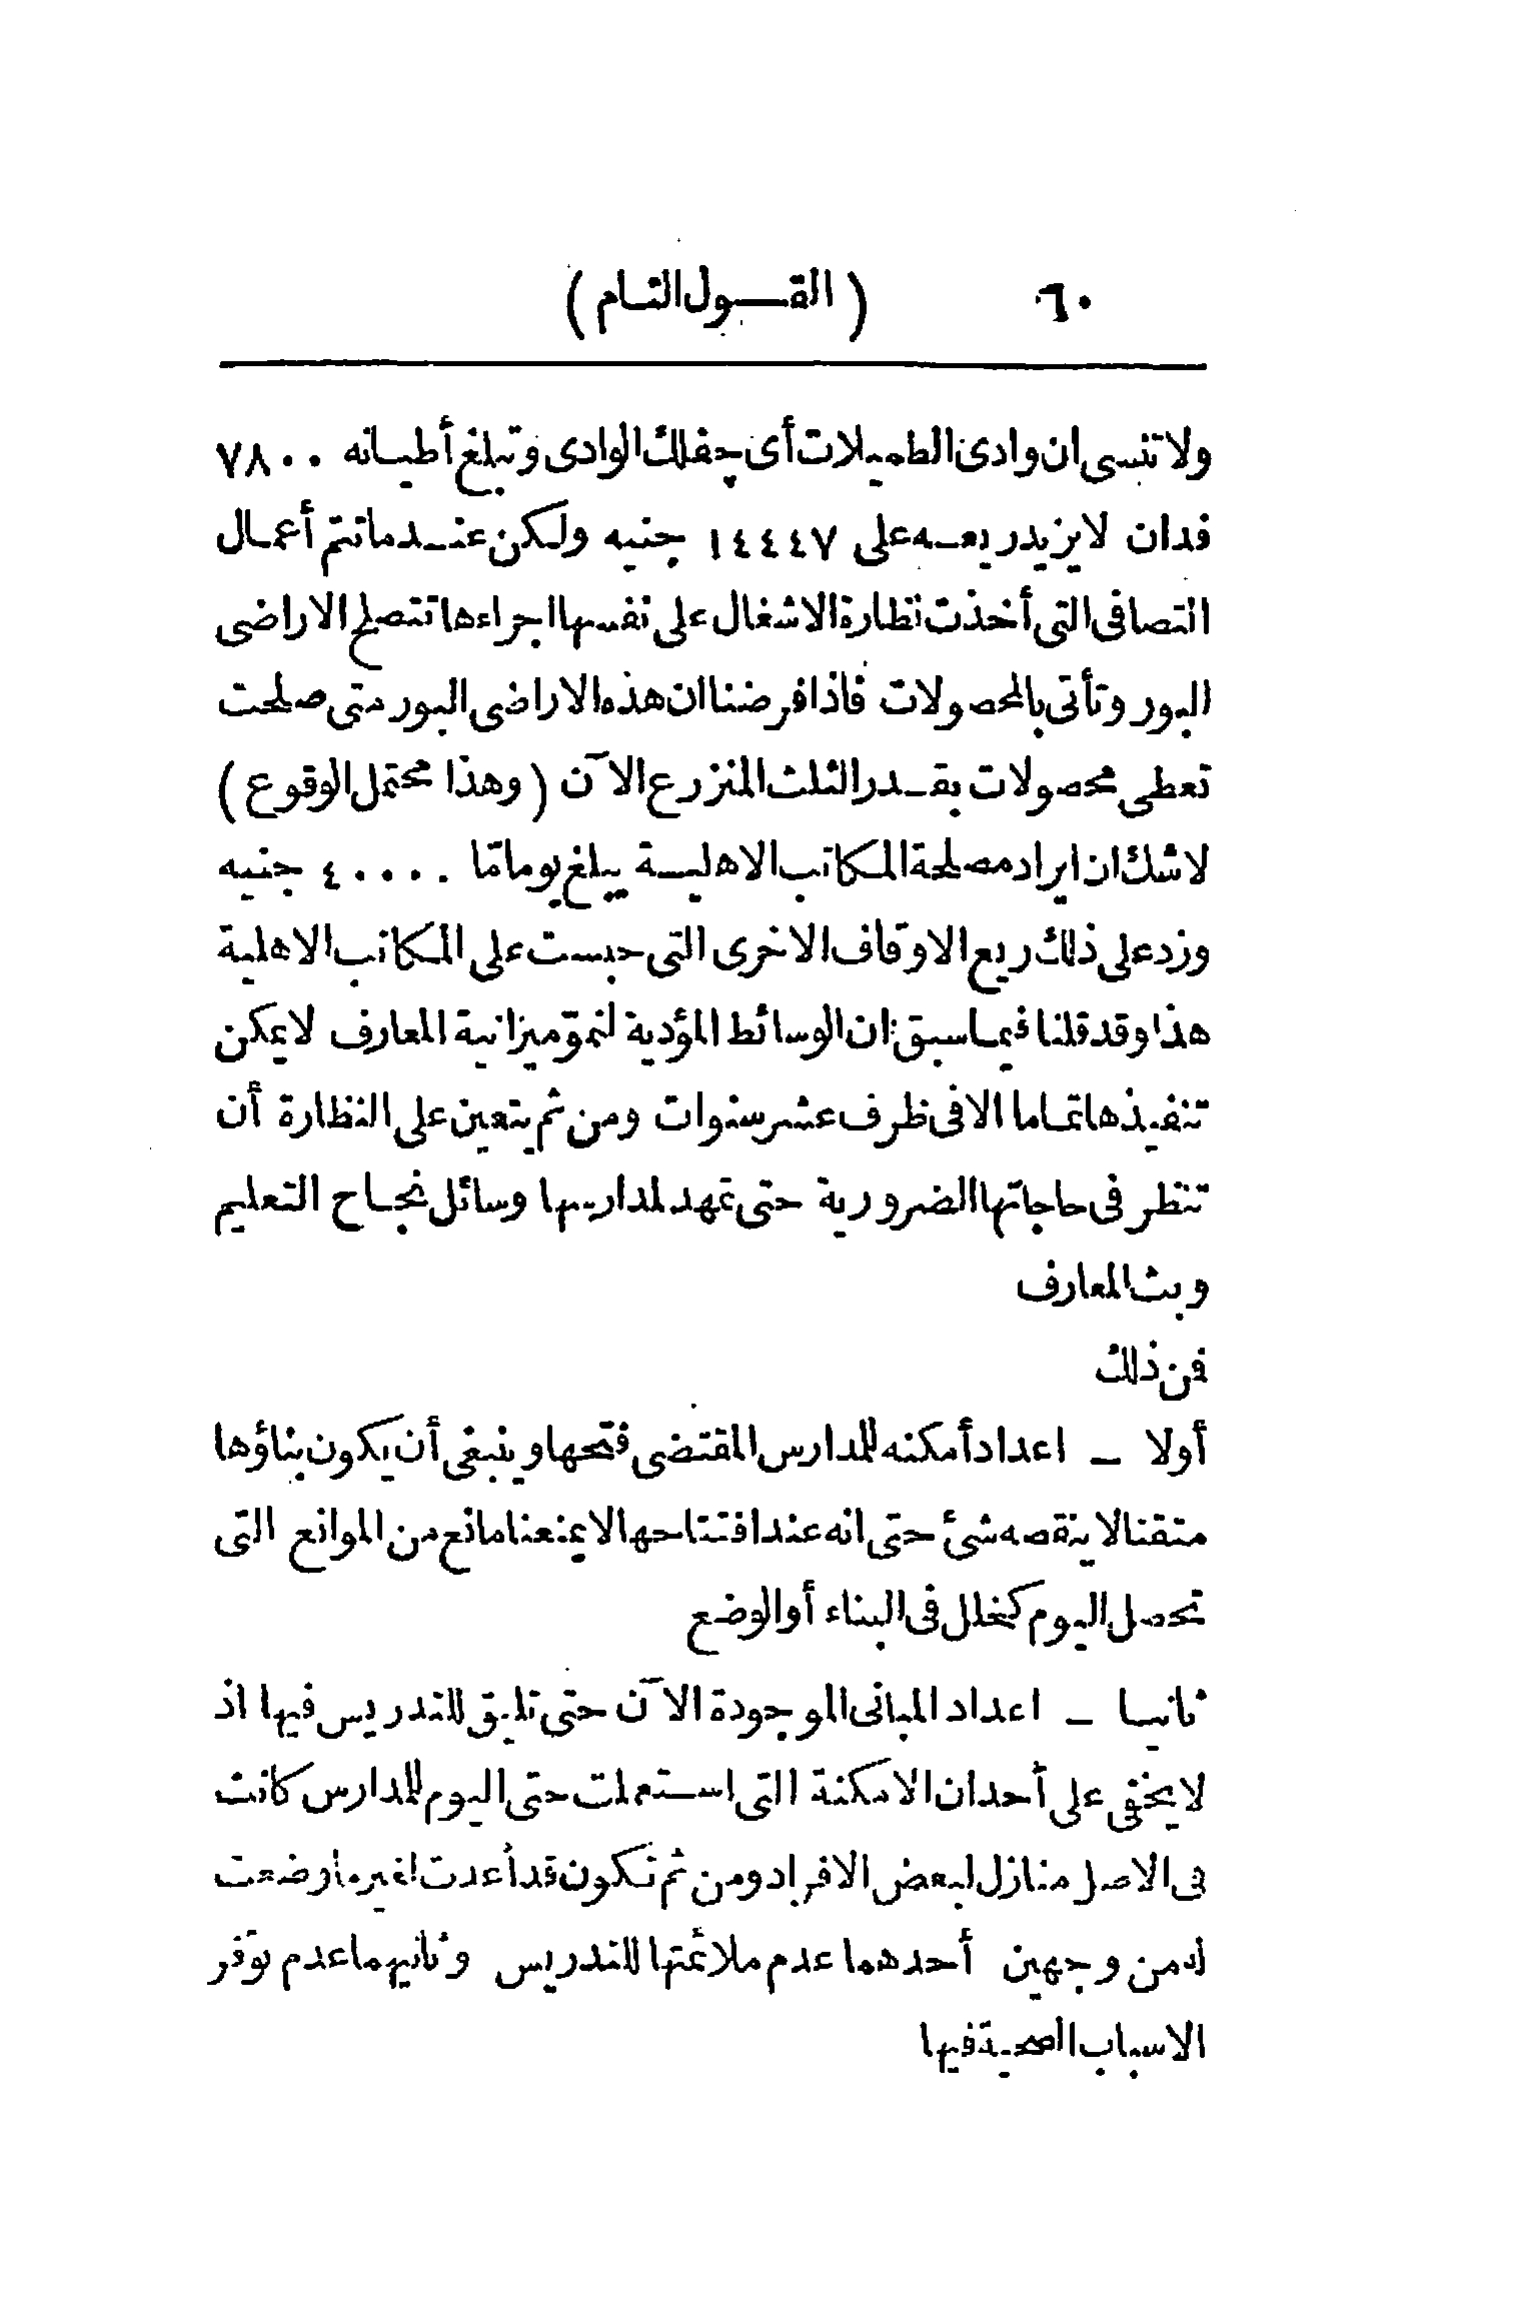 ٦٠ ( القول التام )
ولا تنسى ان وادى الطميلات أى چفلك الوادى وتبلغ أطيانه ٧٨٠٠
فدان لا يزيد ريعه على ١٤٤٤٧ جنيه ولكن عند ما تتم أعمال
التصافى التى أخذت نظارة الاشغال على نفسها اجراءها تتصلح الاراضى
البور وتأتى بالمحصولات فاذا فرضنا ان هذه الاراضى البور متى صلحت
تعطى محصولات بقدر الثلث المنزرع الآن ( وهذا محتمل الوقوع )
لا شك ان ايراد مصلحة المكاتب الاهلية يبلغ يوما مّا ٤٠٠٠٠ جنيه
وزد على ذلك ريع الاوقاف الاخرى التى حبست على المكاتب الاهلية
هذا وقد قلنا فيما سبق ان الوسائط المؤدية لنموّ ميزانية المعارف لا يمكن
تنفيذها تماما الا فى ظرف عشر سنوات ومن ثم يتعين على النظارة أن
تنظر فى حاجاتها الضرورية حتى تمهد لمدارسها وسائل نجاح التعليم
وبث المعارف
فمن ذلك
أولا ـ اعداد أمكنه للمدارس المقتضى فتحها وينبغى أن يكون بناؤها
متقنا لا ينقصه شئ حتى انه عند افتتاحها لا يمنعنا مانع من الموانع التى
تحصل اليوم كخلل فى البناء أو الوضع
ثانيا ـ اعداد المبانى الموجودة الآن حتى تليق للتدريس فيها اذ
لا يخفى على أحد ان الامكنة التى استعملت حتى اليوم للمدارس كانت
فى الاصل منازل لبعض الافراد ومن ثم تكون قد أعدت لغير ما وضعت
له من وجهين أحدهما عدم ملائمتها للتدريس وثانيهما عدم توفر
الاسباب الصحية فيها